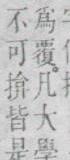 爲覆。凡大學
不可揜皆是